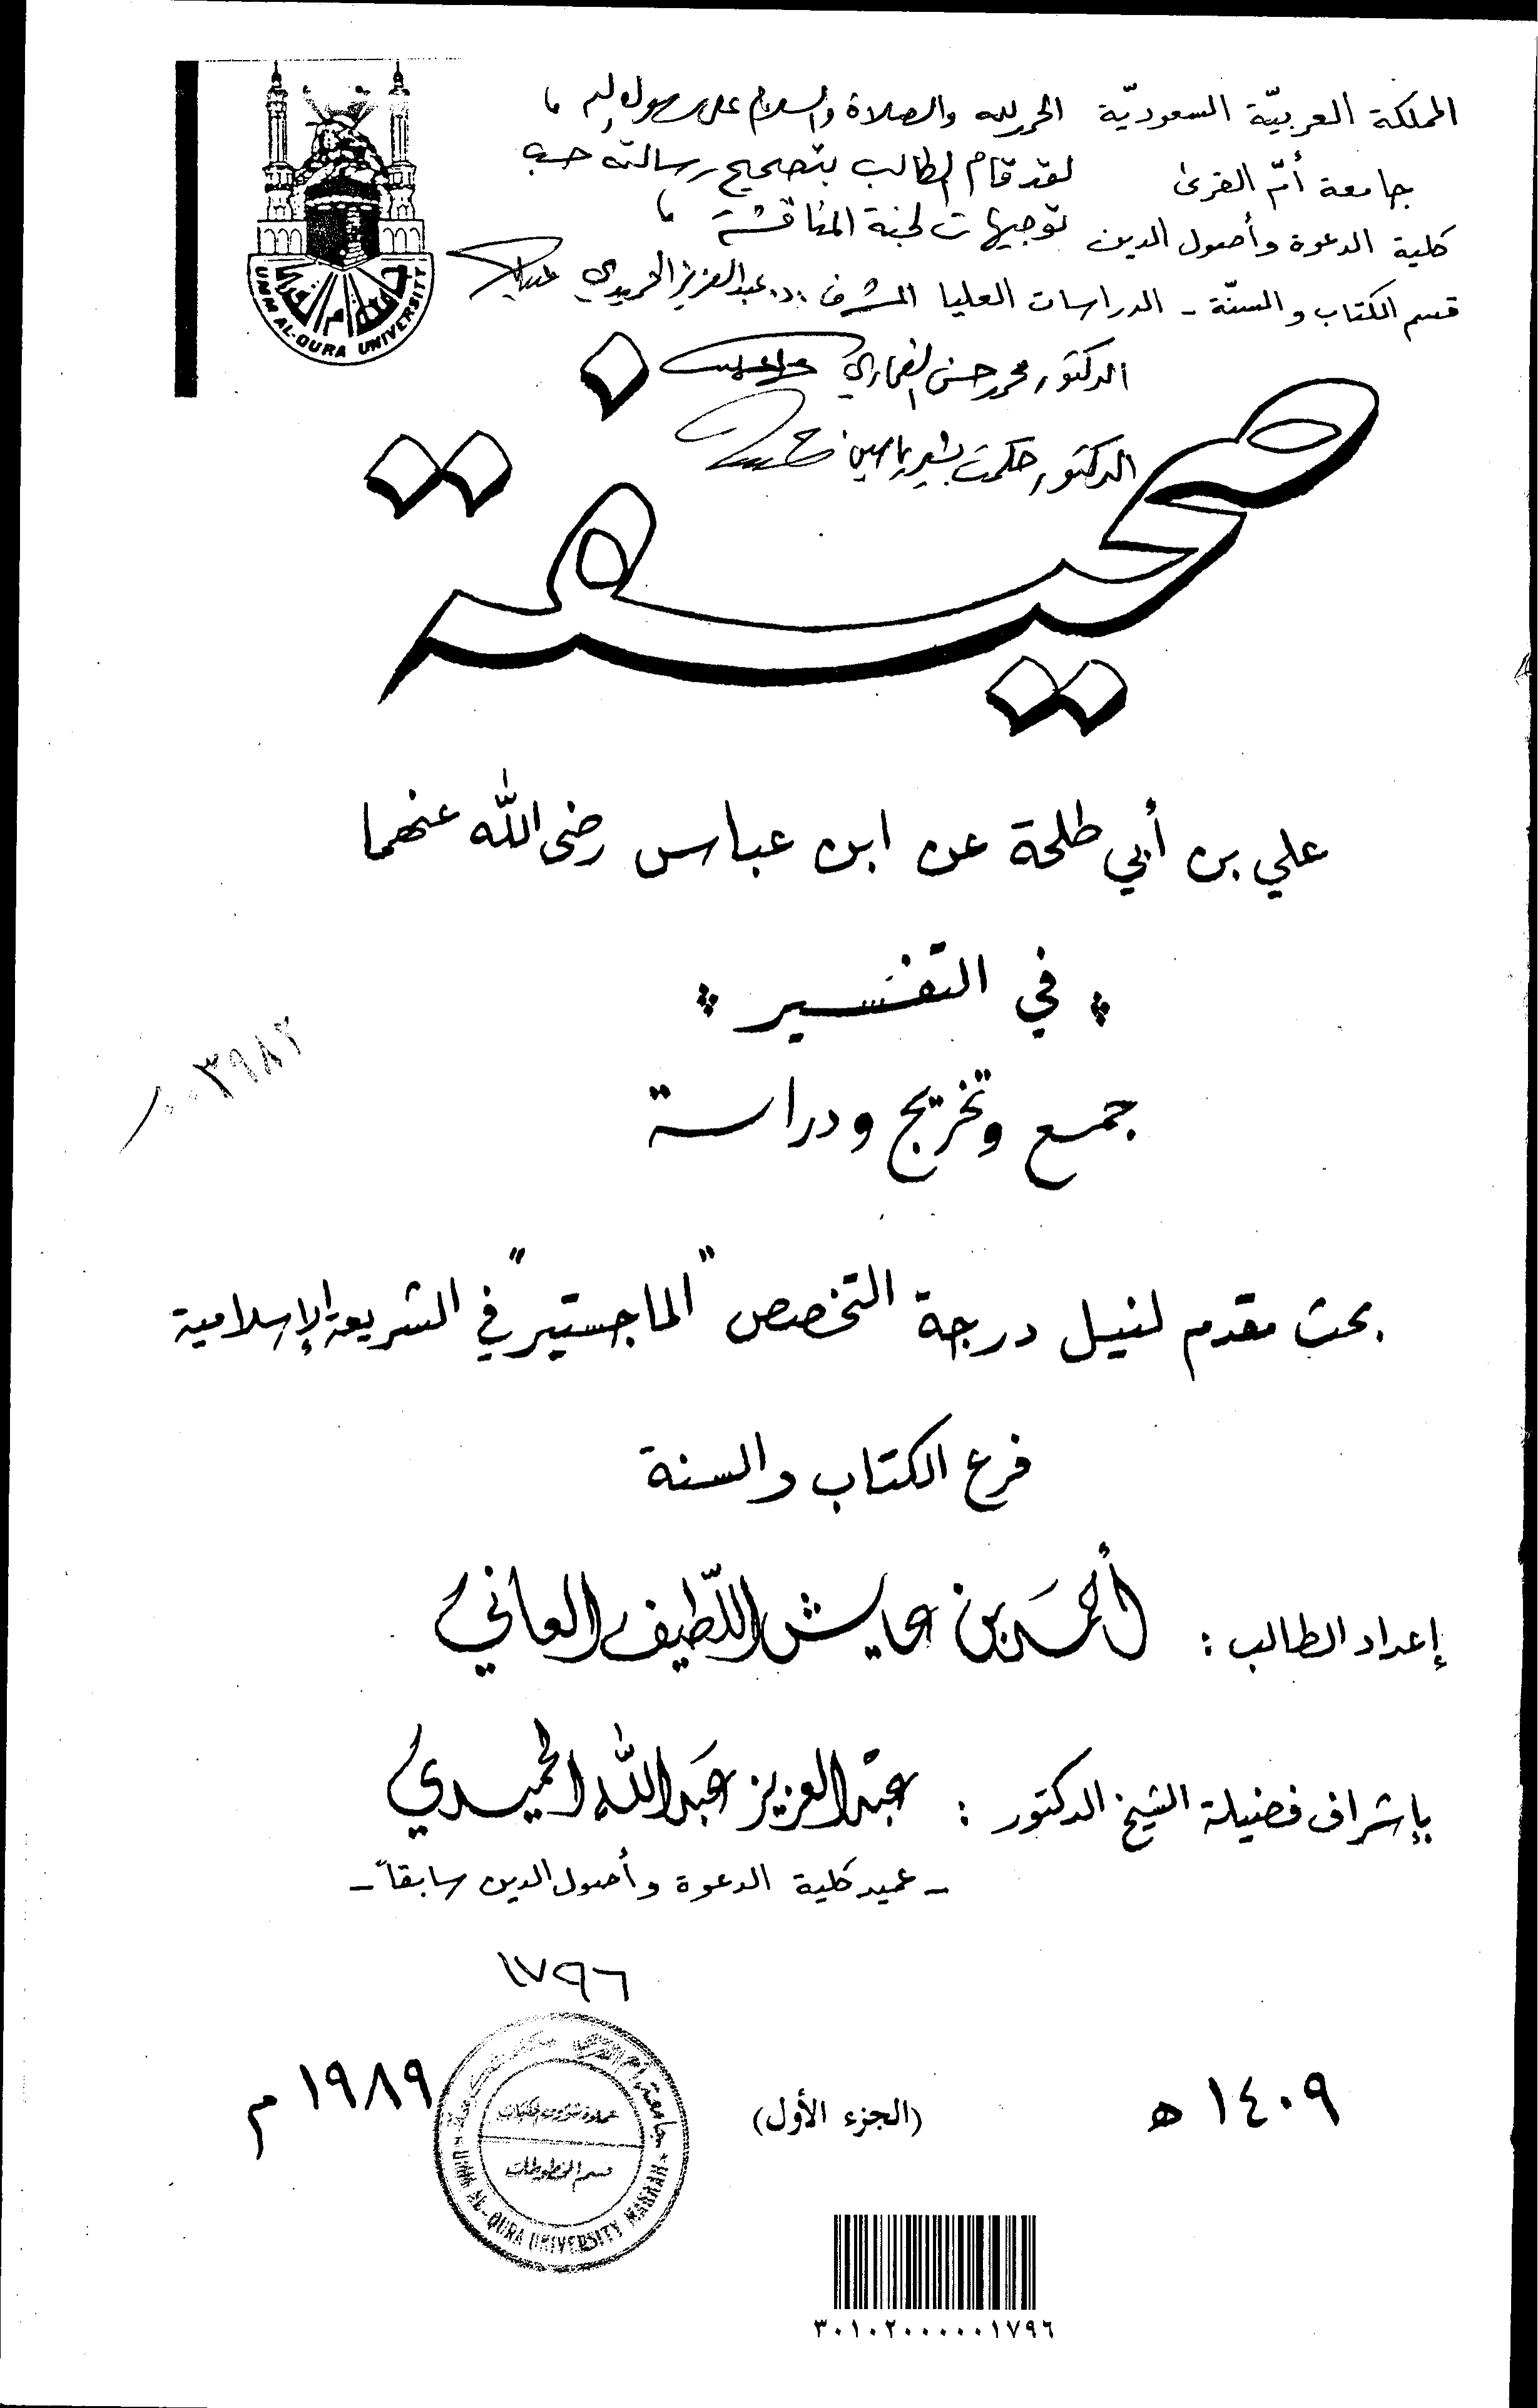 المملكة العربيّة السعوديّة
جامعة أمّ القرى
كلية الدعوة وأصول الدين
قسم الكتاب والسنّة - الدراسات العليا
الحمد لله والصلاة والسلام على رسول الله
لقد قام الطالب بتصحيح رسالته حسب
توجيهات لجنة المناقشة
المشرف د. عبد العزيز الحميدي
الدكتور محمد حسن الغماري
الدكتور حكمت بشير ياسين
UMM AL-QURA UNIVERSITY
جامعة أم القرى
صحيفة
علي بن أبي طلحة عن ابن عباس رضى الله عنهما
في التفسير
٠٠٣٩٨٢
جمع وتخريج ودراسة
بحث مقدم لنيل درجة التخصص "الماجستير" في الشريعة الإسلامية
فرع الكتاب والسنة
إعداد الطالب : أحمد بن عايش اللطيف العاني
بإشراف فضيلة الشيخ الدكتور : عبد العزيز عبد الله الحميدي
- عميد كلية الدعوة وأصول الدين سابقاً -
١٧٩٦
١٤٠٩ هـ (الجزء الأول) ١٩٨٩ م
جامعة أم القرى
عمادة شؤون المكتبات
قسم المخطوطات
UMM AL-QURA UNIVERSITY MAKKAH
٣٠١٠٢٠٠٠٠٠١٧٩٦